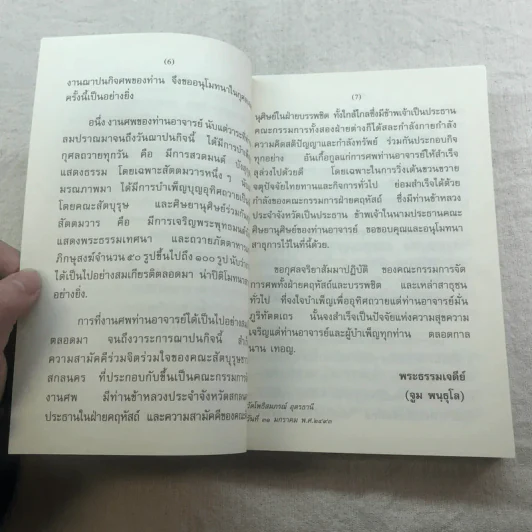 (6)
งานฌาปนกิจศพของท่าน จึงขออนุโมทนาในกุศล
ครั้งนี้เป็นอย่างยิ่ง
อนึ่ง งานศพของท่านอาจารย์ นับแต่วาระที่
สมปราณมาจนถึงวันฌาปนกิจนี้ ได้มีการบำเพ็ญ
กุศลถวายทุกวัน คือ มีการสวดมนต์
แสดงธรรม โดยเฉพาะสัตตมวารหนึ่ง ๆ
มรณภาพมา ได้มีการบำเพ็ญบุญอุทิศถวายเป็น
โดยคณะสัตบุรุษ และศิษยานุศิษย์ร่วมกัน
สัตตมวาร คือ มีการเจริญพระพุทธมนต์
แสดงพระธรรมเทศนา และถวายภัตตาหาร
ภิกษุสงฆ์จำนวน ๕๐ รูปขึ้นไปถึง ๑๐๐ รูป นับว่า
ได้เป็นไปอย่างสมเกียรติตลอดมา น่าปีติโมทนา
อย่างยิ่ง.
การที่งานศพท่านอาจารย์ได้เป็นไปอย่างสม
ตลอดมา จนถึงวาระการฌาปนกิจนี้
ความสามัคคีร่วมจิตร่วมใจของคณะสัตบุรุษชาว
สกลนคร ที่ประกอบกันขึ้นเป็นคณะกรรมการ
งานศพ มีท่านข้าหลวงประจำจังหวัดสกลนคร
ประธานในฝ่ายคฤหัสถ์ และความสามัคคีของคณะ
(7)
นุศิษย์ในฝ่ายบรรพชิต ทั้งใกล้ไกลซึ่งมีข้าพเจ้าเป็นประธาน
คณะกรรมการทั้งสองฝ่ายต่างก็ได้สละกำลังกายกำลัง
ความคิดสติปัญญาและกำลังทรัพย์ ร่วมกันประกอบกิจ
ทุกอย่าง อันเกื้อกูลแก่การศพท่านอาจารย์ให้สำเร็จ
ลุล่วงไปด้วยดี โดยเฉพาะในการวิ่งเต้นขวนขวาย
จตุปัจจัยไทยทานและกิจการทั่วไป ย่อมสำเร็จได้ด้วย
กำลังของคณะกรรมการฝ่ายคฤหัสถ์ ซึ่งมีท่านข้าหลวง
ประจำจังหวัดเป็นประธาน ข้าพเจ้าในนามประธานคณะ
ศิษยานุศิษย์ของท่านอาจารย์ ขอขอบคุณและอนุโมทนา
สาธุการไว้ในที่นี้ด้วย.
ขอกุศลจริยาสัมมาปฏิบัติ ของคณะกรรมการจัด
การศพทั้งฝ่ายคฤหัสถ์และบรรพชิต และเหล่าสาธุชน
ทั่วไป ที่จงใจบำเพ็ญเพื่ออุทิศถวายแด่ท่านอาจารย์มั่น
ภูริทัตตเถร นั้นจงสำเร็จเป็นปัจจัยแห่งความสุขความ
เจริญแด่ท่านอาจารย์และผู้บำเพ็ญทุกท่าน ตลอดกาล
นาน เทอญ.
พระธรรมเจดีย์
(จูม พนฺธุโล)
วัดโพธิสมภรณ์ อุดรธานี
วันที่ ๓๑ มกราคม พ.ศ.๒๔๙๓